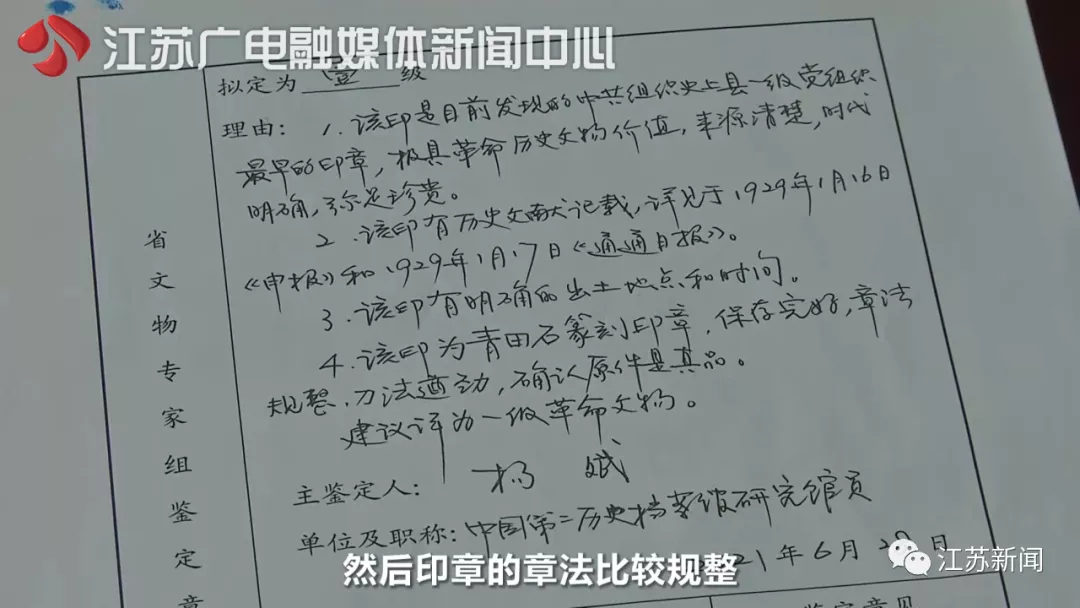 江苏广电融媒体新闻中心
拟定为 壹 级
理由：1.该印是目前发现的中共组织史上县一级党组织
最早的印章，极具革命历史文物价值，来源清楚，时代
明确，弥足珍贵。
2.该印有历史文献记载，详见于1929年1月16日
《申报》和1929年1月17日《通通日报》。
3.该印有明确的出土地点和时间。
4.该印为青田石篆刻印章，保存完好，章法
规整，刀法遒劲，确认原件是真品。
建议评为一级革命文物。
主鉴定人：杨 斌
单位及职称：中国第二历史档案馆研究馆员
21年6月2 日
省文物专家组鉴定意
鉴定意见
然后印章的章法比较规整
江苏新闻